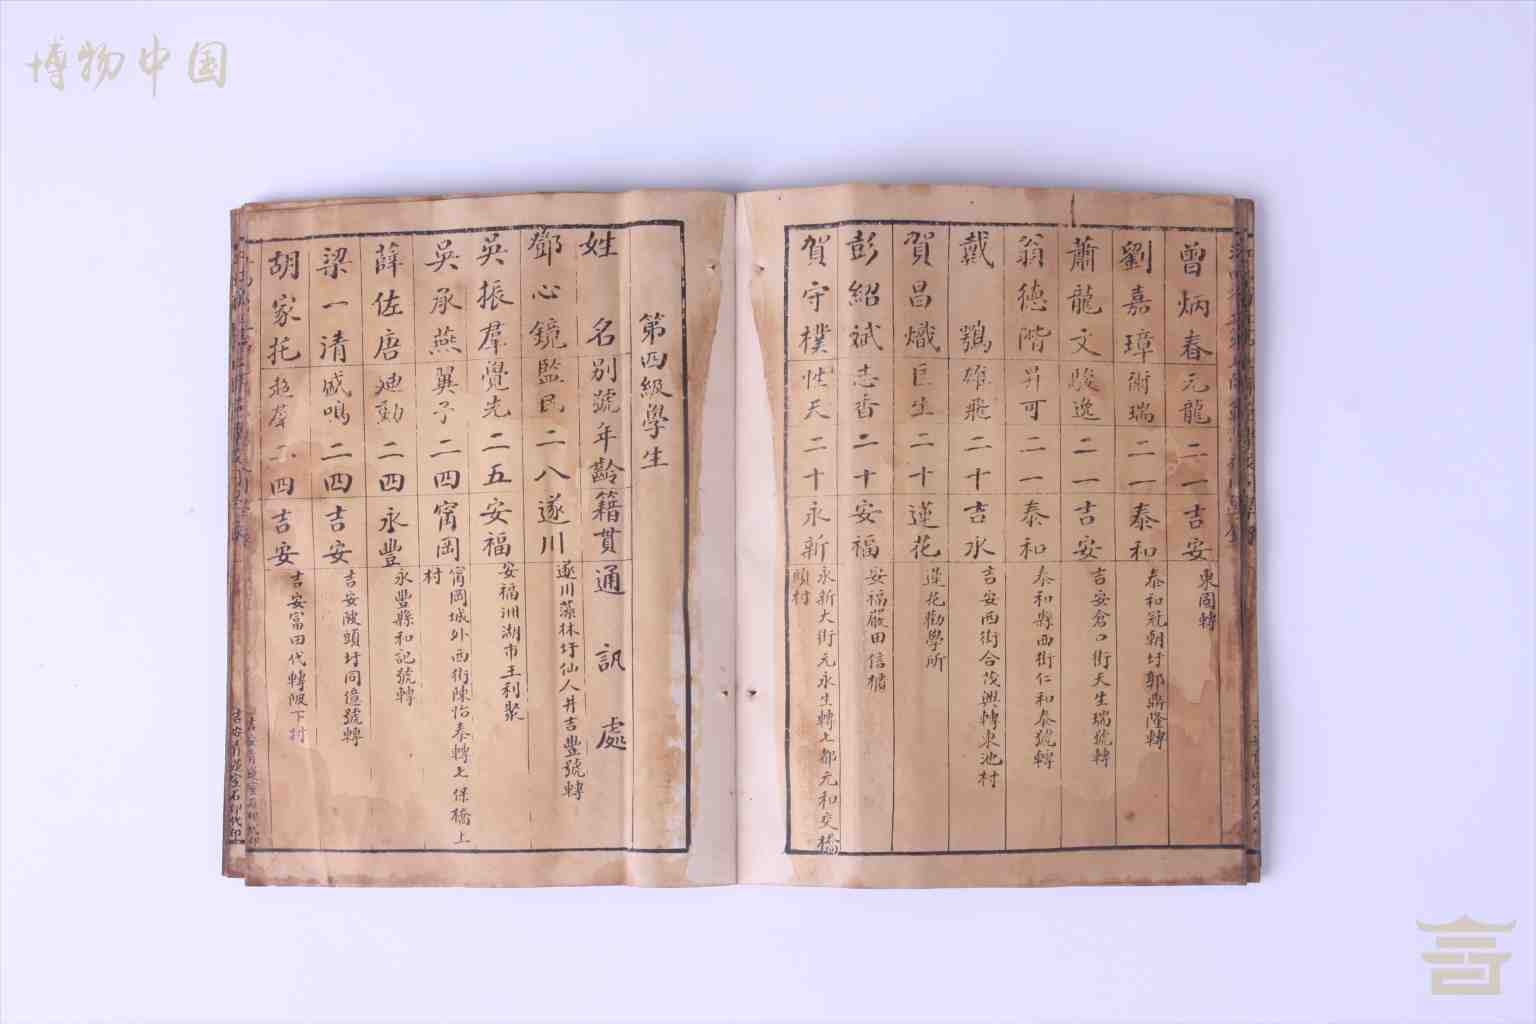 博物中国
曾炳春 元龍 二一 吉安 東固轉
劉嘉璋 衛瑞 二一 泰和 泰和冠朝圩郭鼎隆轉
蕭龍文 駿逸 二一 吉安 吉安倉口街天生瑞號轉
翁德階 昇可 二一 泰和 泰和縣西街仁和泰號轉
戴鶚 雄飛 二十 吉水 吉安西街合茂興轉東池村
賀昌熾 巨生 二十 蓮花 蓮花勸學所
彭紹斌 志香 二十 安福 安福嚴田信櫃
賀守樸 性天 二十 永新 永新大街元永生轉上都元和交橋
頭村
第四級學生
姓名 別號 年齡 籍貫 通訊處
鄧心鏡 監民 二八 遂川 遂川藻林圩仙人井吉豐號轉
吳振羣 覺先 二五 安福 安福洲湖市王利聚
吳承燕 翼予 二四 甯岡 甯岡城外西街陳怡泰轉七保橋上
村
薛佐唐 迪勳 二四 永豐 永豐縣和記號轉
梁一清 盛鳴 二四 吉安 吉安陂頭圩同億號轉
胡家托 超羣 二四 吉安 吉安富田代轉陂下村